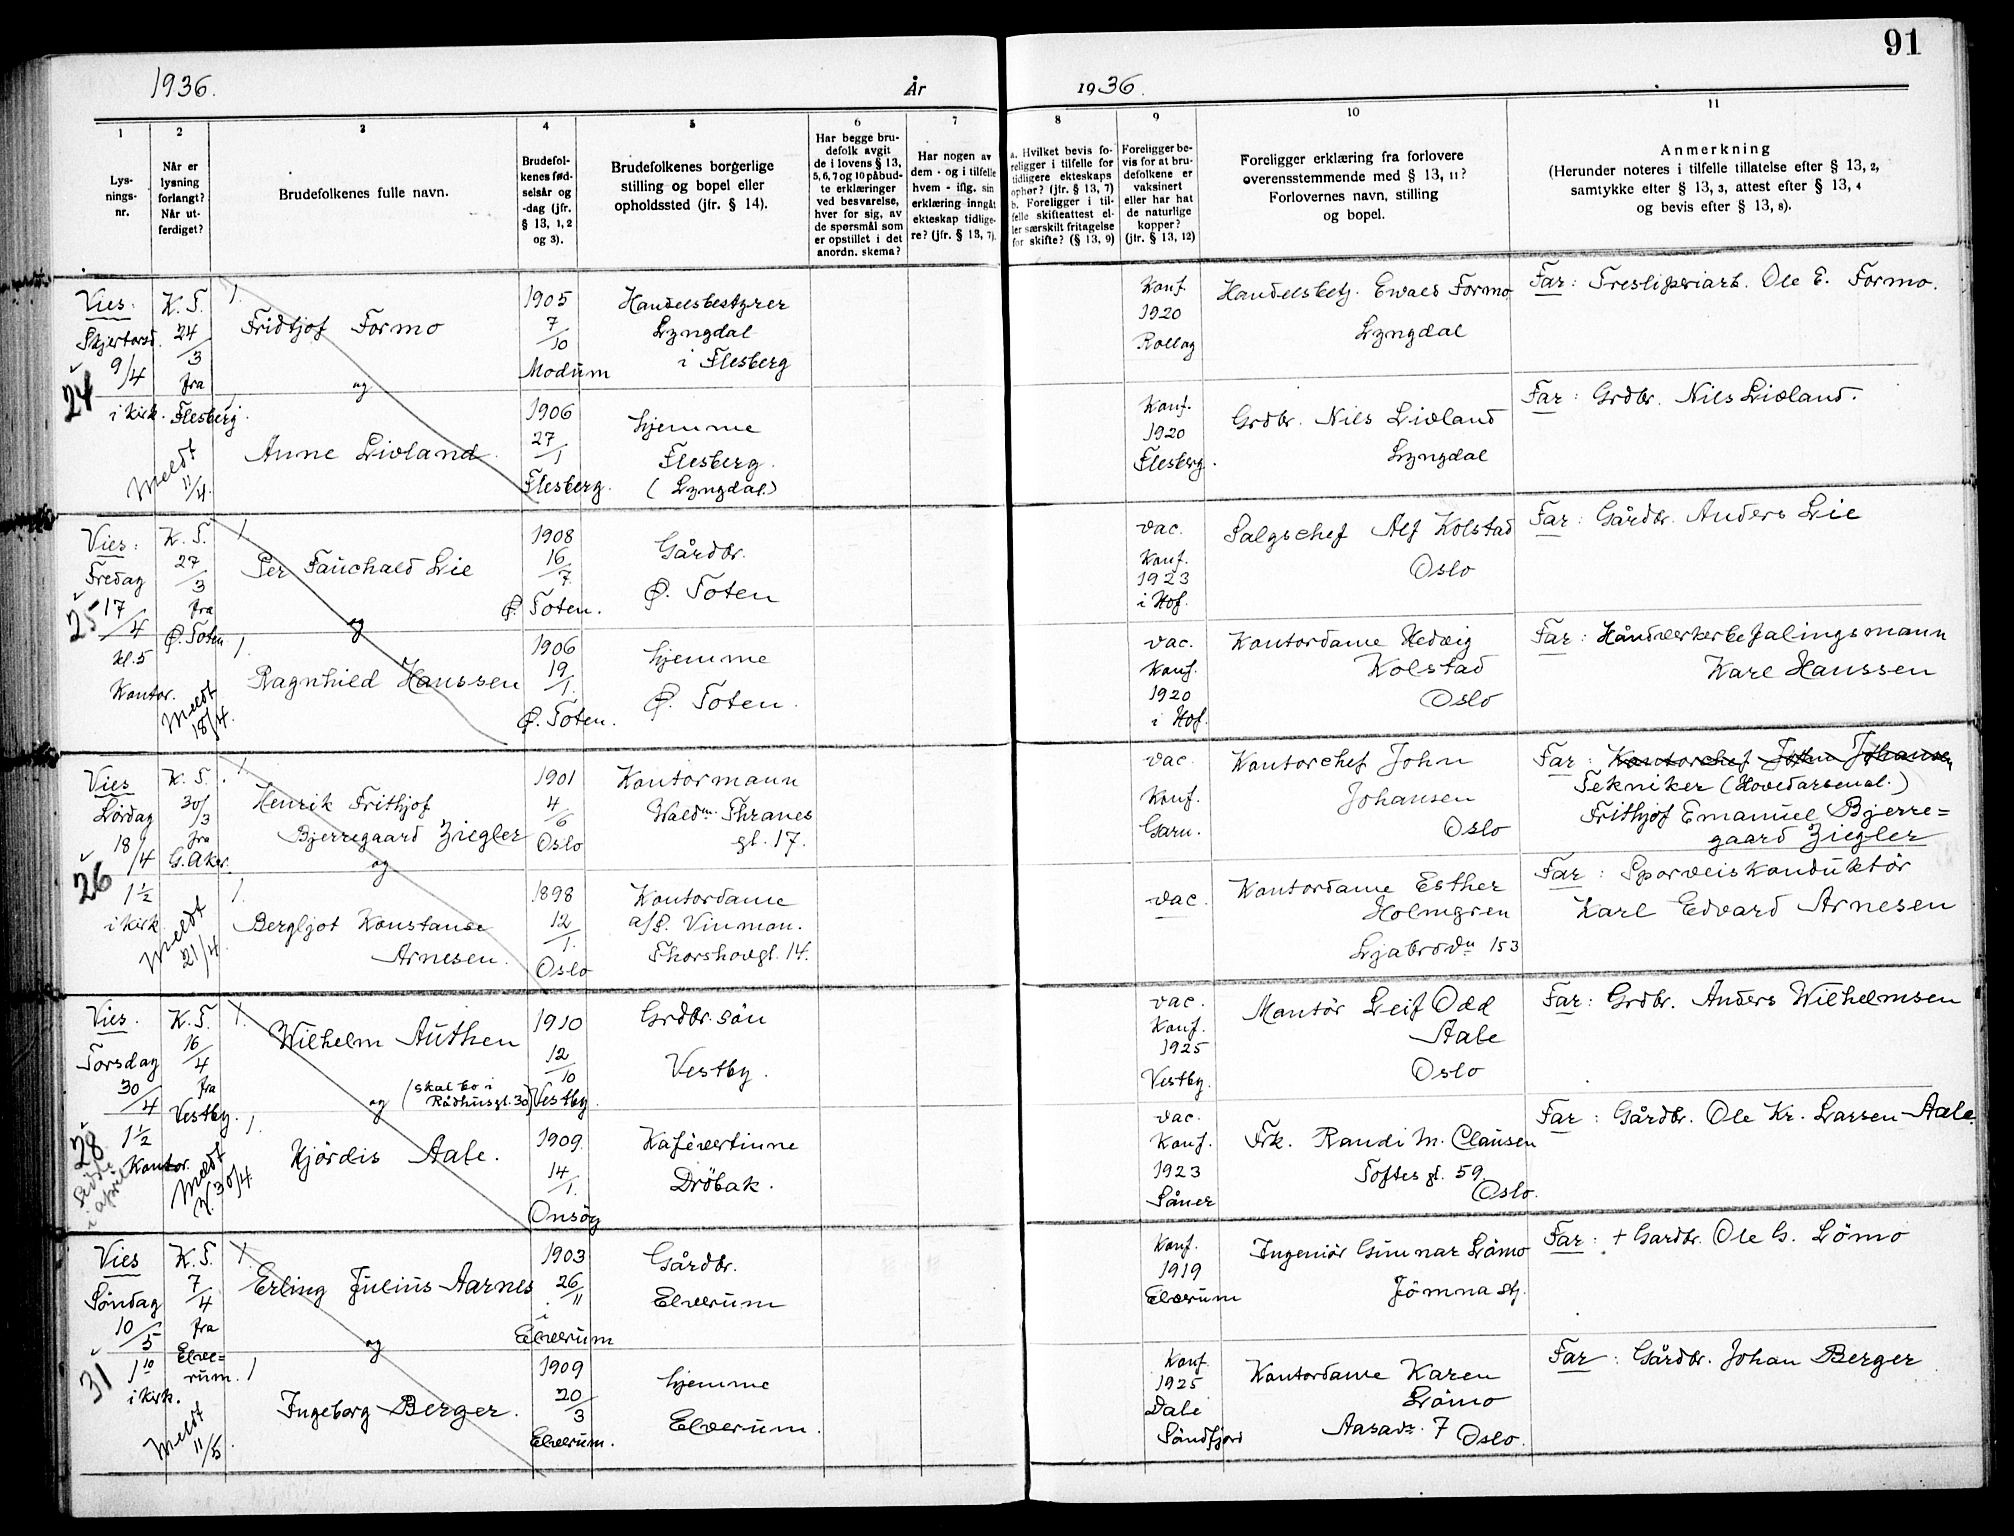 91
1936.
År
1936.
1
2
3
4
5
6
7
8
9
10
11
Lys-
nings-
nr.
Når er
lysning
forlangt?
Når ut-
ferdiget?
Brudefolkenes fulle navn.
Brudefol-
kenes fød-
selsår og
-dag (jfr.
§ 13, 1, 2
og 3).
Brudefolkenes borgerlige
stilling og bopel eller
opholdssted (jfr. § 14).
Har begge bru-
defolk avgit
de i lovens § 13,
5, 6, 7 og 10 påbud-
te erklæringer
ved besvarelse,
hver for sig, av
de spørsmål som
er opstillet i det
anordn. skema?
Har nogen av
dem - og i tilfelle
hvem - iflg. sin
erklæring inngåt
ekteskap tidlige-
re? (jfr. § 13, 7).
a. Hvilket bevis fo-
religger i tilfelle for
tidligere ekteskaps
ophør? (jfr. § 13, 7)
b. Foreligger i til-
felle skifteattest el-
ler særskilt fritagelse
for skifte? (§ 13, 9)
Foreligger be-
vis for at bru-
defolkene er
vaksinert
eller har hat
de naturlige
kopper?
(jfr. § 13, 12)
Foreligger erklæring fra forlovere
overensstemmende med § 13, 11?
Forlovernes navn, stilling
og bopel.
Anmerkning
(Herunder noteres i tilfelle tillatelse efter § 13, 2,
samtykke efter § 13, 3, attest efter § 13, 4
og bevis efter § 13, 8).
24
Vies:
Skjertorsd.
9/4
i kirk.
K. T.
24/3
fra
Flesberg.
Meldt
11/4.
1.
Fridtjof Formo
og
1.
Anne Livland.
1905
7/10
Modum
1906
27/1
Flesberg.
Handelsbestyrer
Lyngdal
i Flesberg
hjemme
Flesberg.
(Lyngdal.)
Konf.
1920
Rollag
Konf.
1920
Flesberg.
Handelsbetj. Ewald Formo
Lyngdal
Grdbr. Nils Livland
Lyngdal
Far: Tresliperiarb. Ole E. Formo.
Far: Grdbr. Nils Livland.
25
Vies:
Fredag
17/4
kl. 5
Kontor.
K. T.
27/3
fra
Ø. Toten
Meldt
18/4.
1.
Per Fauchald Lie
og
1.
Ragnhild Hanssen
1908
16/7
Ø. Toten.
1906
19/1.
Ø. Toten.
Gårdbr.
Ø. Toten
hjemme
Ø. Toten.
vac.
Konf.
1923
i Hof.
vac.
Konf.
1920
i Hof.
Salgschef Alf Kolstad
Oslo
Kontordame Hedvig
Kolstad
Oslo
Far: Gårdbr. Anders Lie
Far: Håndverkerbefalingsmann
Karl Hanssen
26
Vies
Lørdag
18/4
1½
i kirk.
K. T.
30/3
fra
G. Aker.
Meldt
21/4
1.
Henrik Frithjof
Bjerregaard Ziegler
og
1.
Bergljot Konstanse
Arnesen.
1901
4/6
Oslo
1898
12/1.
Oslo
Kontormann
Waldm. Thranes
gt. 17.
Kontordame
a/s. Vinmon.
Thorshovgt. 14.
vac.
Konf.
Garn.
vac.
Kontorchef John
Johansen
Oslo
Kontordame Esther
Holmgren
Ljabrovn 153
Far: Kontorchef John Johansen
Tekniker (Hovedarsenal.)
Frithjof Emanuel Bjerre=
gaard Ziegler
Far: Sporveiskonduktör
Karl Edvard Arnesen
28
Vies.
Torsdag
30/4
1½
Kontor.
Sidste
i april
K. T.
16/4
fra
Vestby.
Meldt
30/4.
1.
Wilhelm Authen
og (skal bo i
Rådhusgt. 30)
1.
Hjördis Aale.
1910
12/10
Vestby.
1909.
14/1.
Onsöy
Grdbr. sön
Vestby.
Kafévertinne
Dröbak.
vac.
Konf.
1925
Vestby.
vac.
Konf.
1923
Såner
Montör Leif Odd
Aale
Oslo
Frk. Randi M. Clausen
Toftes gt. 59
Oslo.
Far: Grdbr. Anders Wilhelmsen
Far: Gårdbr. Ole Kr. Larsen Aale.
31
Vies
Söndag
10/5
1 10
i kirk.
K. T.
7/4
fra
Elve=
rum.
Meldt
11/5.
1.
Erling Julius Aarnes
og
1
Ingeborg Berger.
1903
26/11
i
Elverum
1909
20/3
Elverum.
Gårdbr.
Elverum
hjemme
Elverum.
Konf.
1919
Elverum
Konf.
1925
Dale
Söndfjord
Ingeniör Gunnar Lömo
Jömna st.
Kontordame Karen
Lömo
Aasavn. 7 Oslo.
Far: + Gardbr. Ole G. Lömo
Far: Gårdbr. Johan Berger